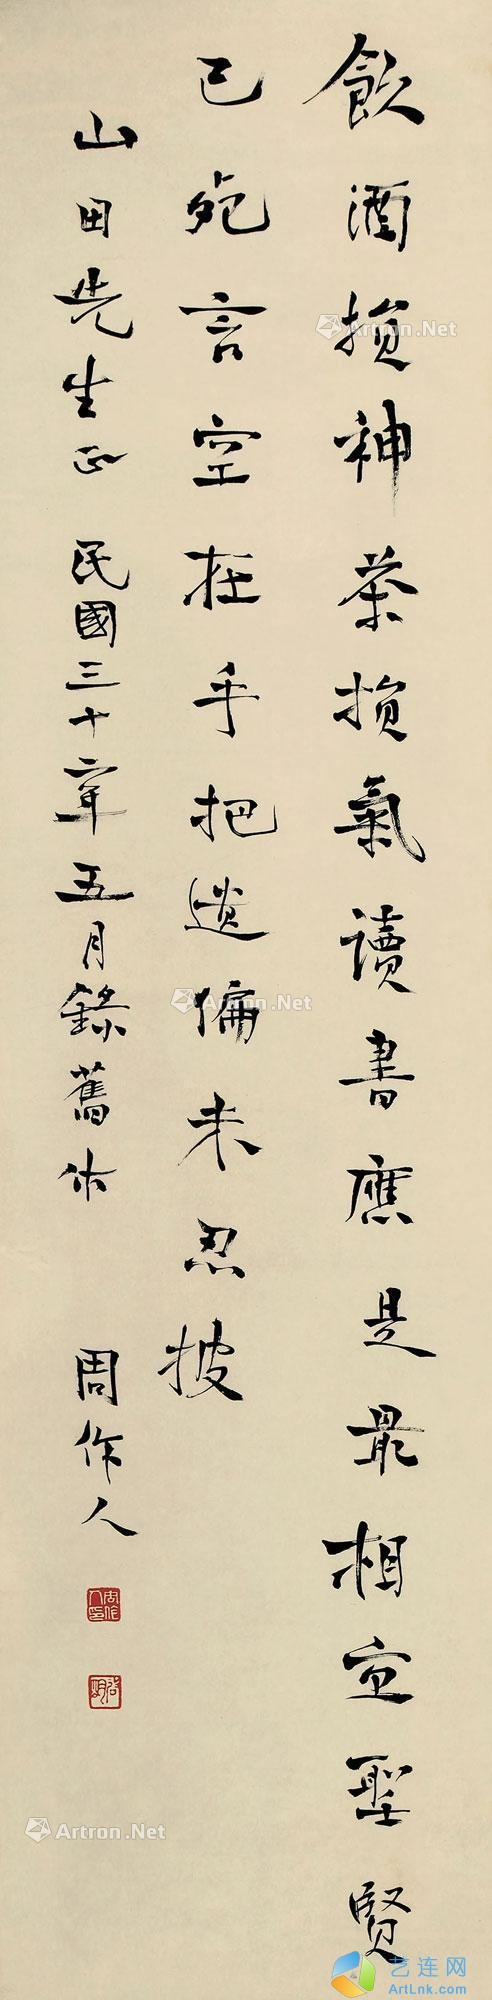 飲酒損神茶損氣讀書應是最相宜聖賢
已死言空在手把遺編未忍披
山田先生正 民國三十二年五月錄舊作 周作人
周作人印
Artron.Net
Artron.Net
Artron.Net
Artron.Net
艺连网
ArtLnk.com